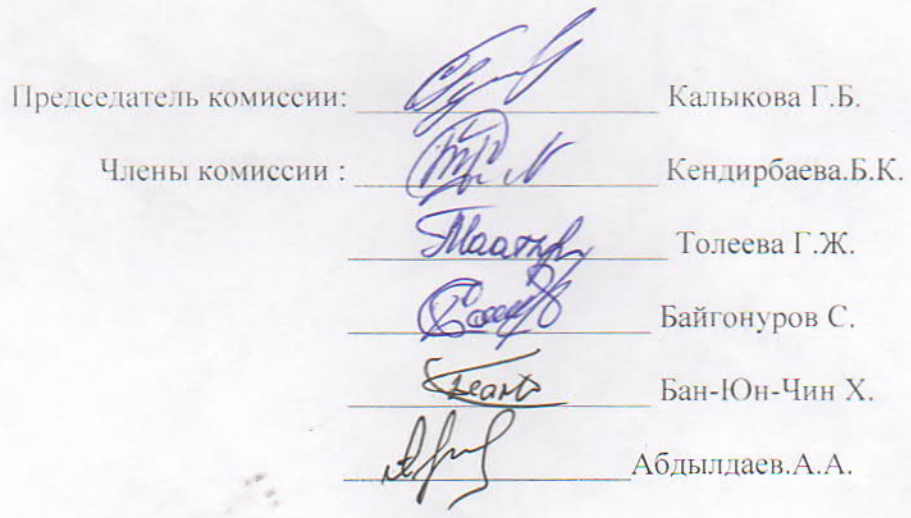 Председатель комиссии: Калыкова Г.Б.
Члены комиссии : Кендирбаева.Б.К.
Толеева Г.Ж.
Байгонуров С.
Бан-Юн-Чин Х.
Абдылдаев.А.А.